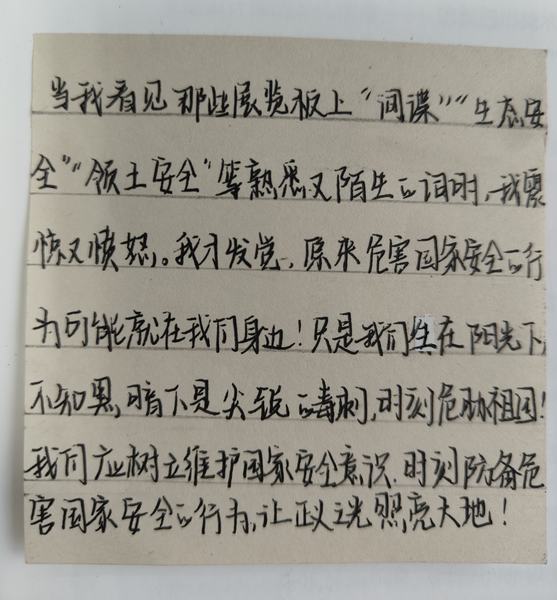 当我看见那些展览板上“间谍”“生态安
全”“领土安全”等熟悉又陌生的词时,我震
惊又愤怒。我才发觉,原来危害国家安全的行
为可能就在我们身边!只是我们生在阳光下,
不知黑暗下是尖锐的毒刺,时刻危胁祖国!
我们应树立维护国家安全意识.时刻防备危
害国家安全的行为,让正义光照亮大地!